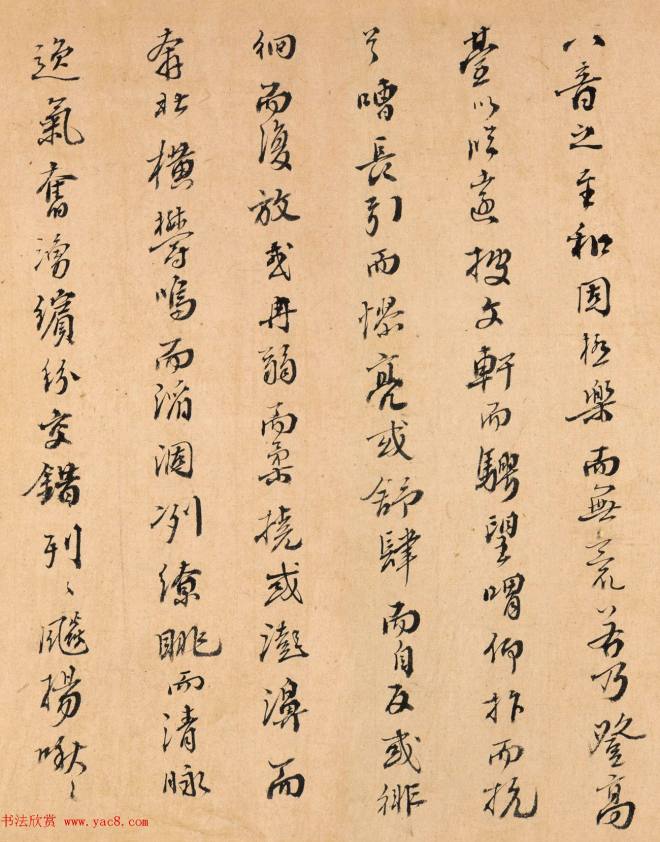 八音之至和固極樂而無荒若乃登高
臺以臨遠披文軒而騁望喟仰抃而抗
首嘈長引而憀亮或舒肆而自反或徘
徊而復放或冉弱而柔撓或澎濞而
奔壯橫鬱鳴而滔涸冽繚眺而清昶
逸氣奮湧繽紛交錯列〻飈揚啾〻
书法欣赏 www.yac8.com